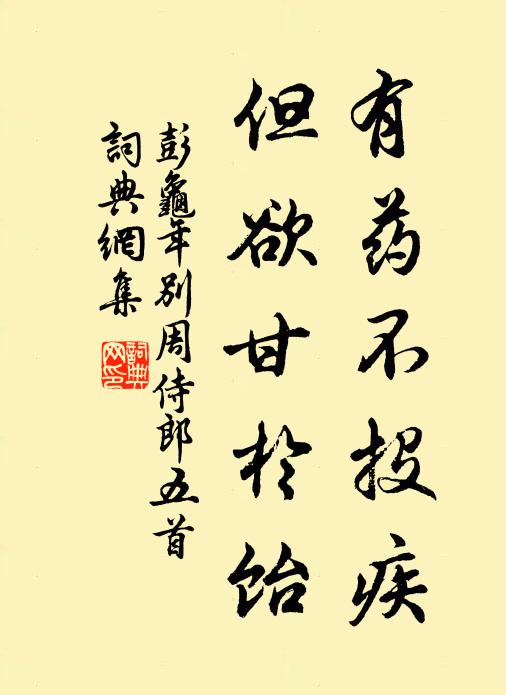 有药不投疾
但欲甘於饴
彭龜年别周侍郎五首
詞典網集
詞典網印